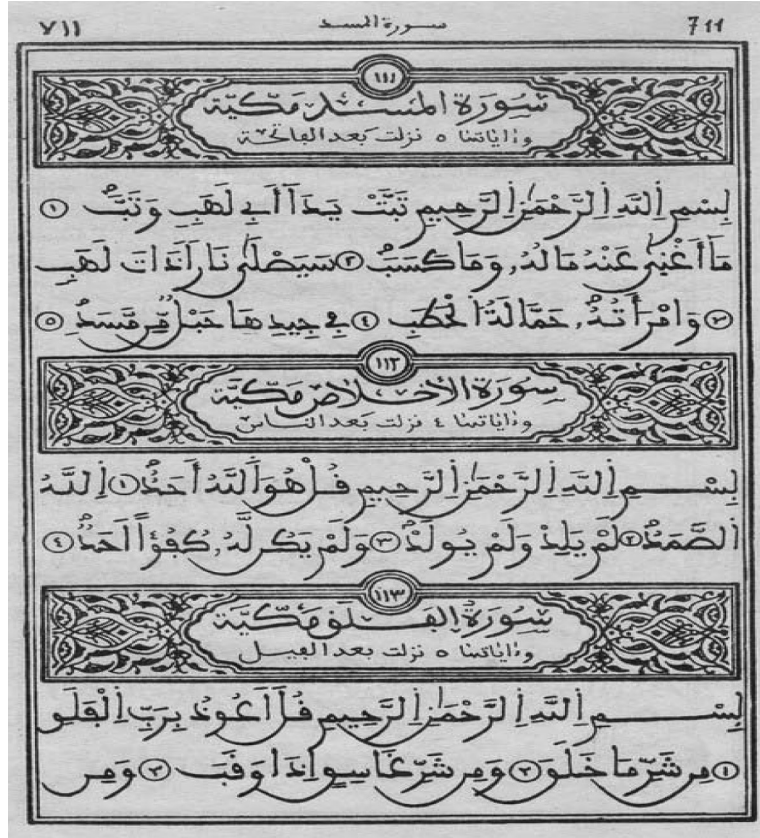 711 سورة المسد ٧١١
١١١
سُورَةُ الْمَسَدِ مَكِّيَّة
وءاياتها ٥ نزلت بعد الفاتحة
بِسْمِ اِللَّهِ اِلرَّحْمَٰنِ اِلرَّحِيمِ تَبَّتْ يَدَآ أَبِى لَهَبٍ وَتَبَّ ١
مَآ أَغْنَىٰ عَنْهُ مَالُهُۥ وَمَا كَسَبَ ٢ سَيَصْلَىٰ نَاراً ذَاتَ لَهَبٍ
٣ وَامْرَأَتُهُۥ حَمَّالَةُ اُلْحَطَبِ ٤ فِى جِيدِهَا حَبْلٌ مِّن مَّسَدٍ ٥
١١٢
سُورَةُ الْإِخْلَاصِ مَكِّيَّة
وءاياتها ٤ نزلت بعد الناس
بِسْمِ اِللَّهِ اِلرَّحْمَٰنِ اِلرَّحِيمِ قُلْ هُوَ اَللَّهُ أَحَدٌ ١ اِللَّهُ
اُلصَّمَدُ ٢ لَمْ يَلِدْ وَلَمْ يُولَدْ ٣ وَلَمْ يَكُن لَّهُۥ كُفُؤاً اَحَدٌ ٤
١١٣
سُورَةُ الْفَلَقِ مَكِّيَّة
وءاياتها ٥ نزلت بعد الفيل
بِسْمِ اِللَّهِ اِلرَّحْمَٰنِ اِلرَّحِيمِ قُلَ اَعُوذُ بِرَبِّ اِلْفَلَقِ
١ مِن شَرِّ مَا خَلَقَ ٢ وَمِن شَرِّ غَاسِقٍ اِذَا وَقَبَ ٣ وَمِن